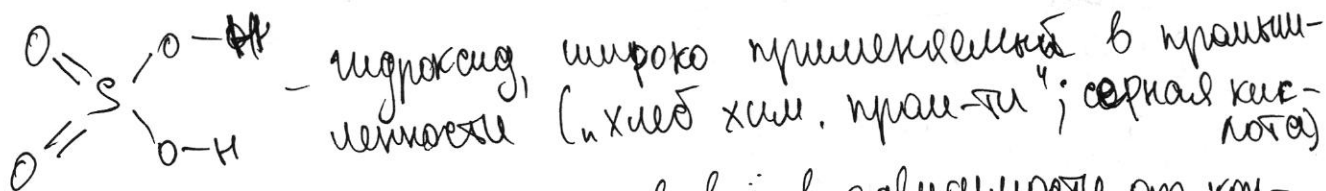 O O–H
S – гидроксид, широко применяемый в промыш-
ленности („хлеб хим. пром-ти"; серная кис-
лота)
O O–H
в зависимости от кон-